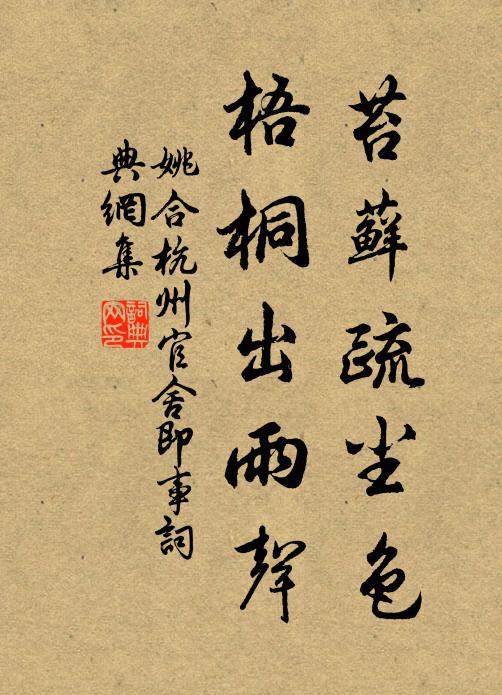 苔蘚疏尘色
梧桐出雨聲
姚合杭州官舍即事詞
典網集
詞典
网印